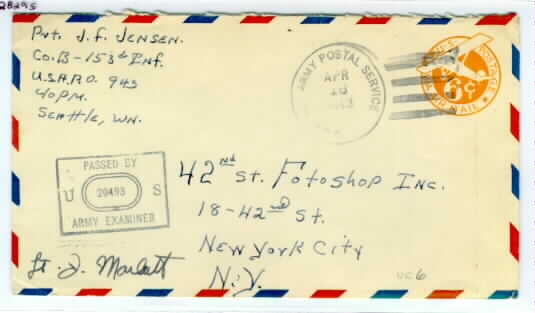 28295
Pvt. J. F. JENSEN.
Co. B - 153d Inf.
U.S.A.P.O. 943
% P.M.
SEATTLE, WN.
ARMY POSTAL SERVICE
APR
POSTAGE
6¢
AIR MAIL
PASSED BY
U 20493 S
ARMY EXAMINER
42nd St. FOTOSHOP INC.
18-42nd St.
NEW YORK CITY
N.Y.
Lt. J. Marlatt
UC6